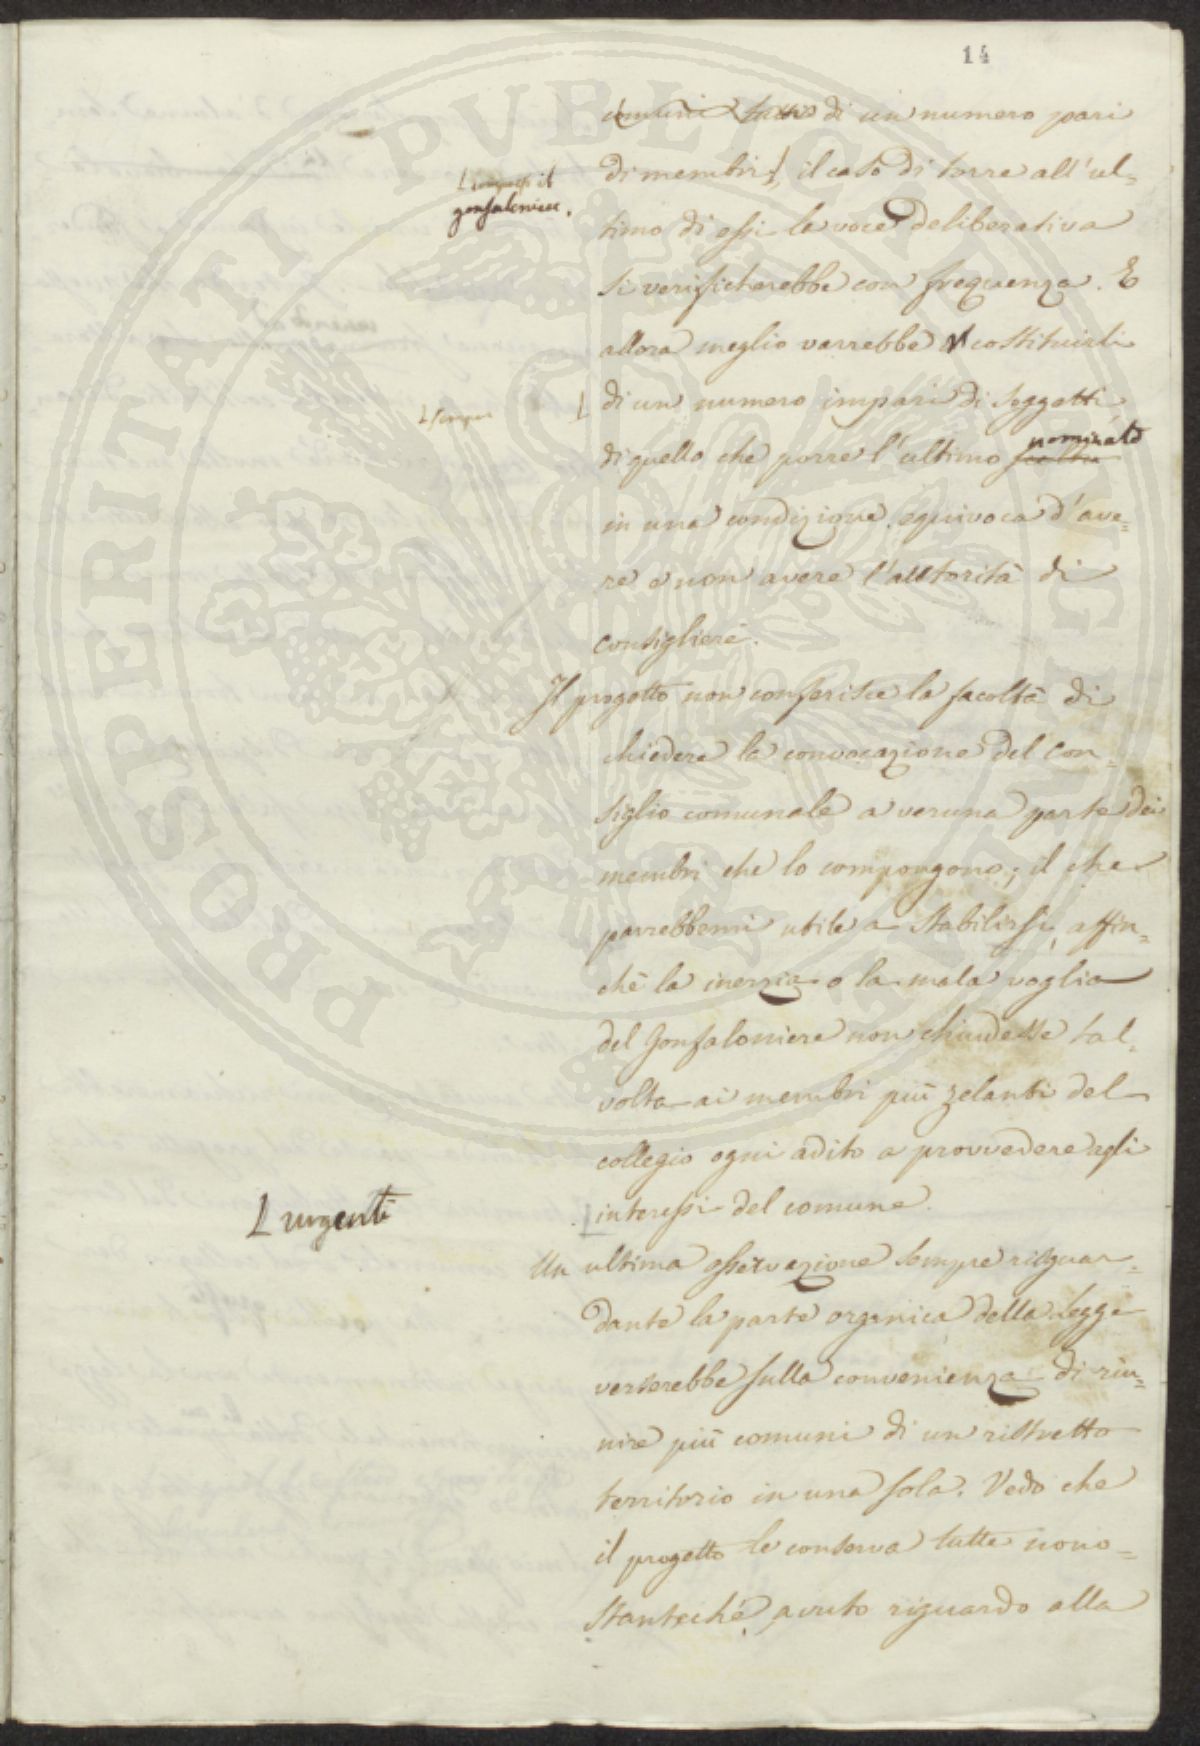 14
comuni tutti di un numero pari
di membri, il caso di torre all'ul=
timo di essi la voce deliberativa
si verificherebbe con frequenza. E
allora meglio varrebbe costituirli
di un numero impari di soggetti,
di quello che porre l'ultimo scelto nominato
in una condizione equivoca d'ave=
re e non avere l'autorità di
consigliere.
Il progetto non conferisce la facoltà di
chiedere la convocazione del con=
siglio comunale a veruna parte dei
membri che lo compongono; il che
parrebbemi utile a stabilirsi, affin=
chè la inerzia o la mala voglia
del Gonfaloniere non chiudesse tal=
volta ai membri più zelanti del
collegio ogni adito a provvedere agli
interessi del comune.
Un ultima osservazione sempre risguar=
dante la parte organica della legge
verserebbe sulla convenienza di riu=
nire più comuni di un ristretto
territorio in una sola. Vedo che
il progetto le conserva tutte nono=
stantechè, avuto riguardo alla
compresi il
gonfaloniere,
urgenti
PROSPERITATI PVBLICAE